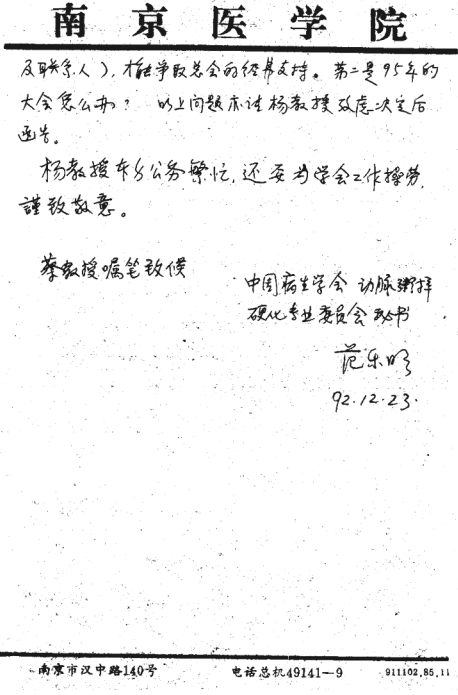 南京医学院
及联系人),才能争取总会的经费支持。第二是95年的
大会怎么办? 以上问题亦请杨教授考虑决定后
函告。
杨教授本身公务繁忙,还要为学会工作操劳,
謹致敬意。
蔡教授嘱笔致候
中国病生学会 动脉粥样
硬化专业委员会 秘书
范乐明
92.12.23.
南京市汉中路140号 电话总机49141—9 911102.85.11